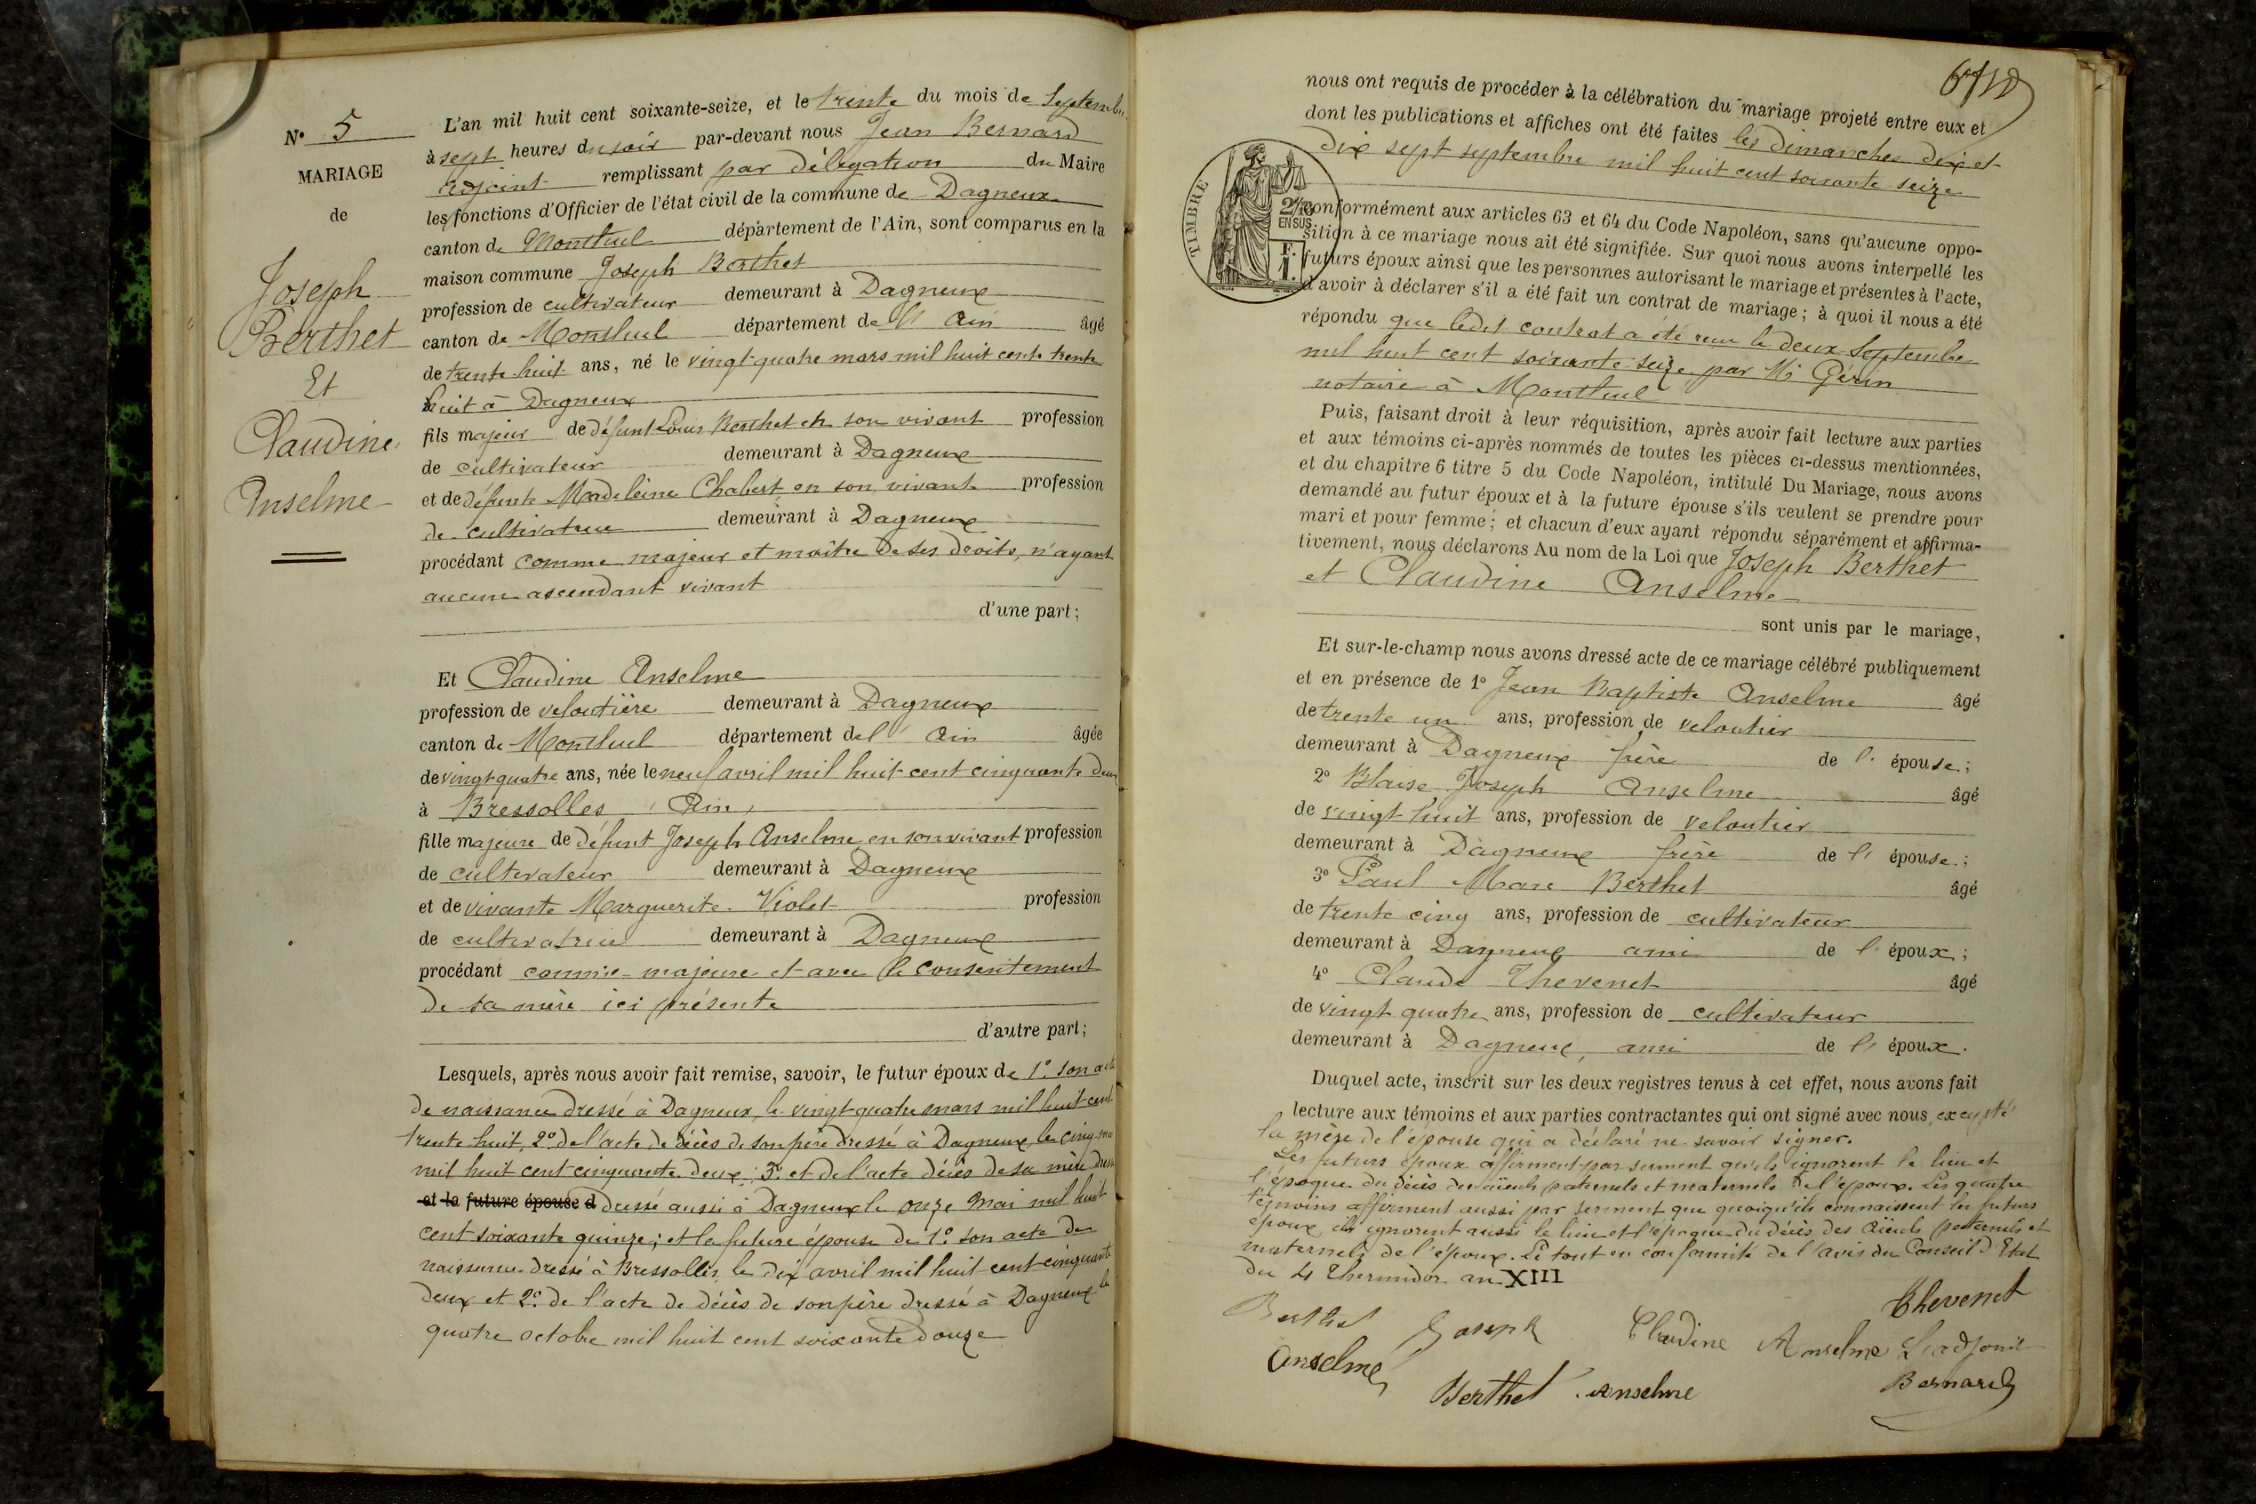 N° 5
MARIAGE
de
Joseph
Berthet
Et
Claudine
Anselme
L'an mil huit cent soixante-seize, et le trente du mois de Septembre
à sept heures du soir par-devant nous Jean Bernard
adjoint remplissant par délégation du Maire
les fonctions d'Officier de l'état civil de la commune de Dagneux
canton de Montluel département de l'Ain, sont comparus en la
maison commune Joseph Berthet
profession de cultivateur demeurant à Dagneux
canton de Montluel département de l'Ain âgé
de trente-huit ans, né le vingt-quatre mars mil huit cent trente
huit à Dagneux
fils majeur de défunt Louis Berthet en son vivant profession
de cultivateur demeurant à Dagneux
et de défunte Madeleine Chabert en son vivant profession
de cultivatrice demeurant à Dagneux
procédant comme majeur et maître de ses droits, n'ayant
aucun ascendant vivant
d'une part;
Et Claudine Anselme
profession de veloutière demeurant à Dagneux
canton de Montluel département de l'Ain âgée
de vingt quatre ans, née le neuf avril mil huit cent cinquante deux
à Bressolles, Ain,
fille majeure de défunt Joseph Anselme en son vivant profession
de cultivateur demeurant à Dagneux
et de vivante Marguerite Violet profession
de cultivatrice demeurant à Dagneux
procédant comme majeure et avec le consentement
de sa mère ici présente
d'autre part;
Lesquels, après nous avoir fait remise, savoir, le futur époux de 1° son acte
de naissance dressé à Dagneux, le vingt quatre mars mil huit cent
trente huit, 2° de l'acte de décès de son père dressé à Dagneux le cinq
mil huit cent cinquante deux; 3° et de l'acte décès de sa mère
et la future épouse d dressé aussi à Dagneux le onze Mai mil huit
cent soixante quinze; et la future épouse de 1° son acte de
naissance dressé à Bressolles le dix avril mil huit cent cinquante
deux et 2° de l'acte de décès de son père dressé à Dagneux le
quatre octobre mil huit cent soixante douze
nous ont requis de procéder à la célébration du mariage projeté entre eux et
dont les publications et affiches ont été faites les dimanches dix et
dix sept septembre mil huit cent soixante seize
TIMBRE
2/10
EN SUS
F.
I.
conformément aux articles 63 et 64 du Code Napoléon, sans qu'aucune oppo-
sition à ce mariage nous ait été signifiée. Sur quoi nous avons interpellé les
futurs époux ainsi que les personnes autorisant le mariage et présentes à l'acte,
d'avoir à déclarer s'il a été fait un contrat de mariage; à quoi il nous a été
répondu que ledit contrat a été reçu le deux Septembre
mil huit cent soixante-seize par Me Gérin
notaire à Montluel
Puis, faisant droit à leur réquisition, après avoir fait lecture aux parties
et aux témoins ci-après nommés de toutes les pièces ci-dessus mentionnées,
et du chapitre 6 titre 5 du Code Napoléon, intitulé Du Mariage, nous avons
demandé au futur époux et à la future épouse s'ils veulent se prendre pour
mari et pour femme; et chacun d'eux ayant répondu séparément et affirma-
tivement, nous déclarons Au nom de la Loi que Joseph Berthet
et Claudine Anselme
sont unis par le mariage,
Et sur-le-champ nous avons dressé acte de ce mariage célébré publiquement
et en présence de 1° Jean Baptiste Anselme âgé
de trente un ans, profession de veloutier
demeurant à Dagneux frère de l' épouse;
2° Blaise Joseph Anselme âgé
de vingt huit ans, profession de veloutier
demeurant à Dagneux frère de l' épouse;
3° Paul Marc Berthet âgé
de trente cinq ans, profession de cultivateur
demeurant à Dagneux ami de l' époux;
4° Claude Thevenet âgé
de vingt quatre ans, profession de cultivateur
demeurant à Dagneux, ami de l' époux.
Duquel acte, inscrit sur les deux registres tenus à cet effet, nous avons fait
lecture aux témoins et aux parties contractantes qui ont signé avec nous, excepté
la mère de l'épouse qui a déclaré ne savoir signer.
Les futurs époux affirment par serment qu'ils ignorent le lieu et
l'époque du décès des aïeuls paternels et maternels de l'époux. Les quatre
témoins affirment aussi par serment que quoiqu'ils connaissent les futurs
époux ils ignorent aussi le lieu et l'époque du décès des aïeuls paternels et
maternels de l'époux. Le tout en conformité de l'avis du Conseil d'Etat
du 4 Thermidor an XIII
Berthet Joseph Claudine Anselme Thevenet
Anselme Berthet Anselme L'adjoint
Bernard